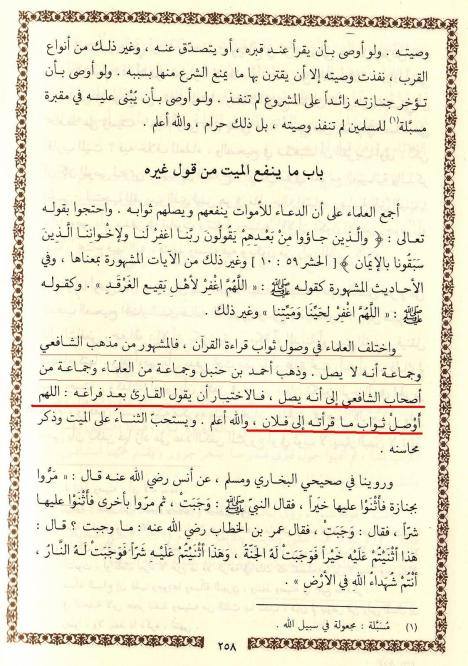 وصيته . ولو أوصى بأن يقرأ عند قبره ، أو يتصدّق عنه ، وغير ذلك من أنواع
القرب ، نفذت وصيته إلا أن يقترن بها ما يمنع الشرع منها بسببه . ولو أوصى بأن
تؤخر جنازته زائداً على المشروع لم تنفذ . ولو أوصى بأن يُبْنى عليه في مقبرة
مسبّلة(١) للمسلمين لم تنفذ وصيته ، بل ذلك حرام ، والله أعلم .
باب ما ينفع الميت من قول غيره
أجمع العلماء على أن الدعاء للأموات ينفعهم ويصلهم ثوابه . واحتجوا بقوله
تعالى : ﴿ وَالَّذِينَ جاؤوا مِنْ بَعْدِهِمْ يَقُولُونَ رَبَّنا اغْفِرْ لَنا وَلإِخْوانِنا الَّذِينَ
سَبَقُونا بالإِيمَانِ ﴾ [ الحشر ٥٩ : ١٠ ] وغير ذلك من الآيات المشهورة بمعناها ، وفي
الأحاديث المشهورة كقوله ﷺ : « اللَّهُمَّ اغْفِرْ لأَهْلِ بَقِيعِ الغَرْقَدِ » . وكقوله
ﷺ : « اللَّهُمَّ اغْفِرْ لِحَيِّنا وَمَيِّتِنا » وغير ذلك .
واختلف العلماء في وصول ثواب قراءة القرآن ، فالمشهور من مذهب الشافعي
وجماعة أنه لا يصل . وذهب أحمد بن حنبل وجماعة من العلماء وجماعة من
أصحاب الشافعي إلى أنه يصل ، فالاختيار أن يقول القارئ بعد فراغه : اللهم
أوْصِلْ ثواب ما قرأته إلى فلان ، والله أعلم . ويستحب الثناءُ على الميت وذكر
محاسنه .
وروينا في صحيحي البخاري ومسلم ، عن أنس رضي الله عنه قال : « مَرُّوا
بجنازة فأثْنَوْا عليها خيْراً ، فقال النبيّ ﷺ : وَجَبَتْ ، ثم مرّوا بأخرى فأَثْنَوْا عليها
شرّاً ، فقال : وَجَبَتْ ، فقال عمر بن الخطاب رضي الله عنه : ما وجبت ؟ قال :
هَذا أثْنَيْتُمْ عَلَيْهِ خَيْراً فَوَجَبَتْ لَهُ الجَنَّةُ ، وَهَذا أثْنَيْتُمْ عَلَيْهِ شَرّاً فَوَجَبَتْ لَهُ النَّارُ ،
أَنْتُمْ شُهَداءُ اللَّهِ في الأرْضِ » .
(١) مُسَبَّلة : مجعولة في سبيل الله .
٢٥٨